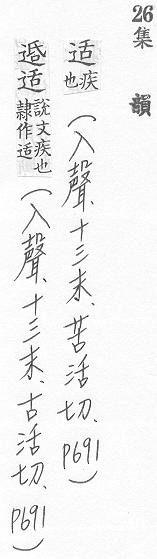 26
集韻
适
疾也
(入聲、十三末、苦活切、P691)
适
說文疾也
隸作适
(入聲、十三末、古活切、P691)